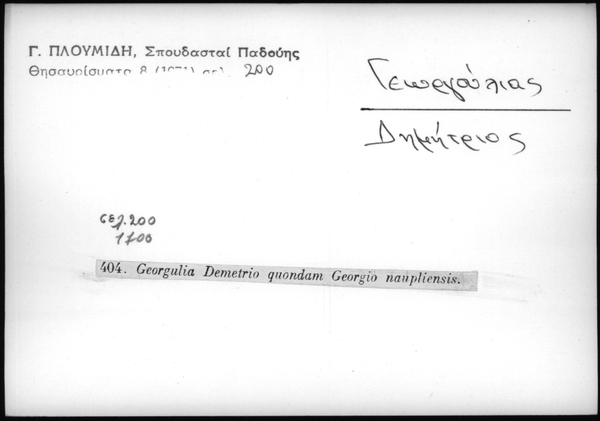 Γ. ΠΛΟΥΜΙΔΗ, Σπουδασταί Παδούης
Θησαυρίσματα 8 (1971) σελ. 200
Γεωργούλιας
Δημήτριος
σελ. 200
1700
404. Georgulia Demetrio quondam Georgio naupliensis.